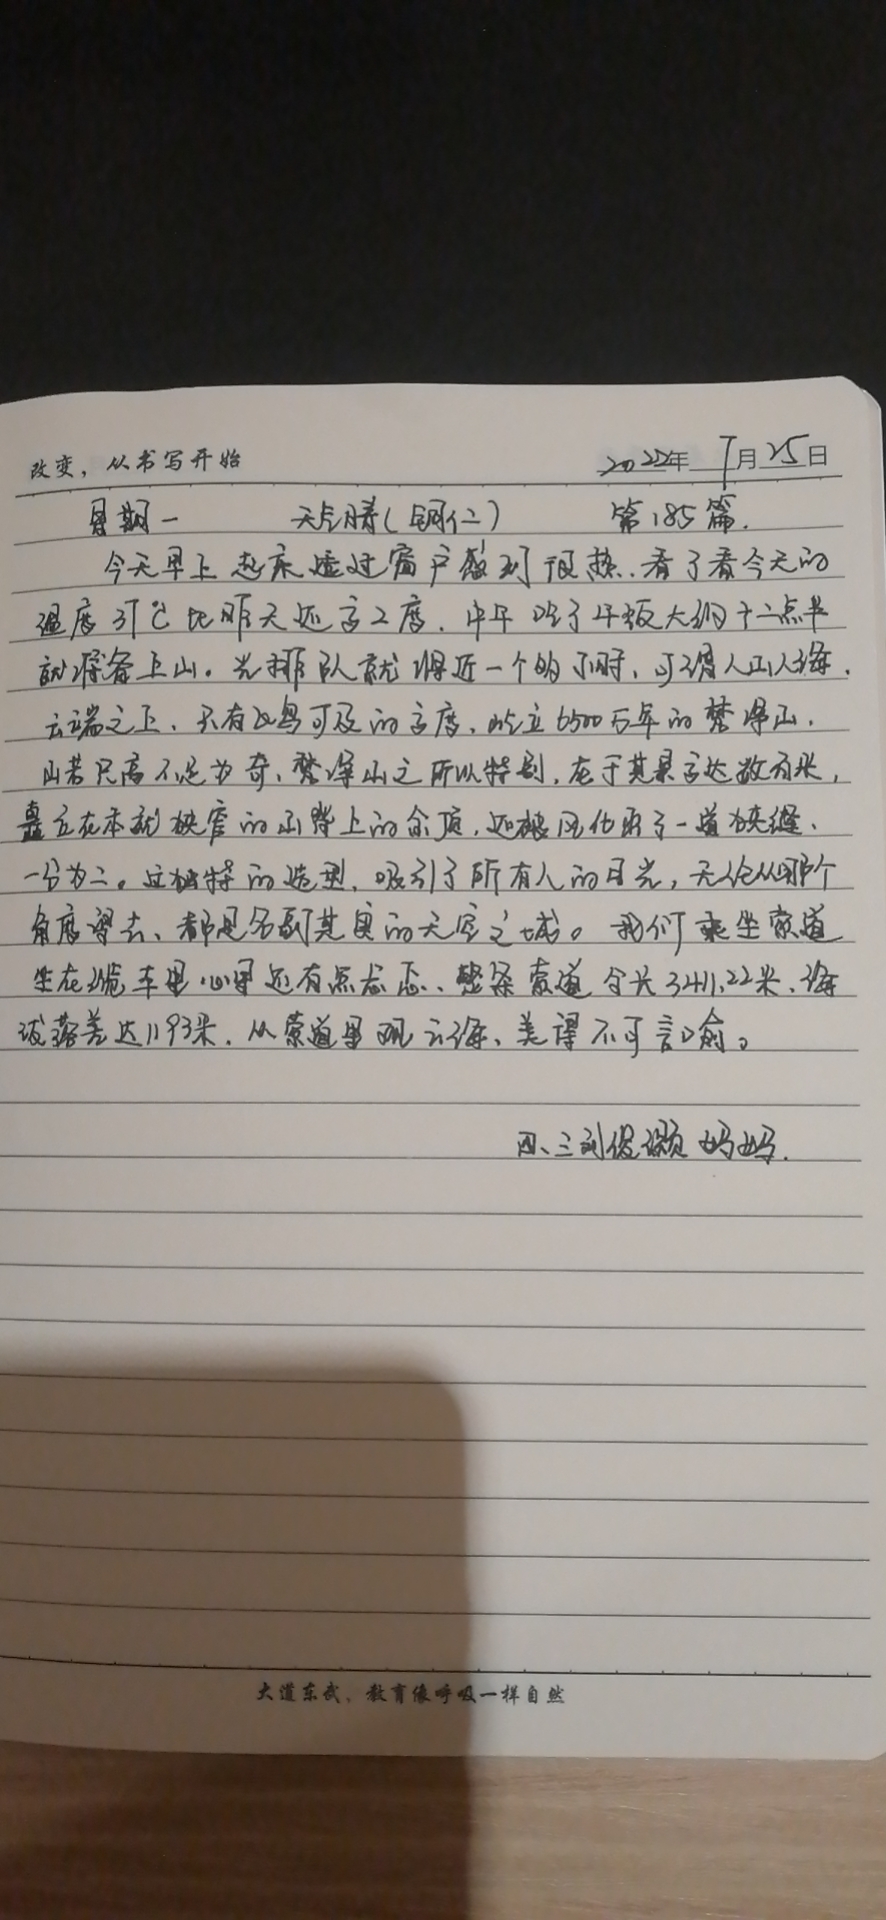 改变，从书写开始
2022年 7月 25日
星期一 天气晴（铜仁） 第185篇.
今天早上起床透过窗户感到很热.看了看今天的
温度 37℃比昨天还高2度.中午吃了午饭大约十二点半
就准备上山。光排队就将近一个的小时，可谓人山人海.
云端之上、只有飞鸟可及的高度，屹立6500万年的梵净山.
山若只高不足为奇、梵净山之所以特别，在于其景高达数百米，
矗立在本就狭窄的山脊上的金顶，还被风化出了一道狭缝、
一分为二。这独特的造型，吸引了所有人的目光，无论从哪个
角度望去、都是名副其实的天空之城。我们乘坐索道
坐在缆车里心里还有点忐忑、整条索道全长3411.22米、海
拔落差达1193米.从索道里观云海、美得不可言喻。
四、三刘俊灏妈妈.
大道东武、教育像呼吸一样自然